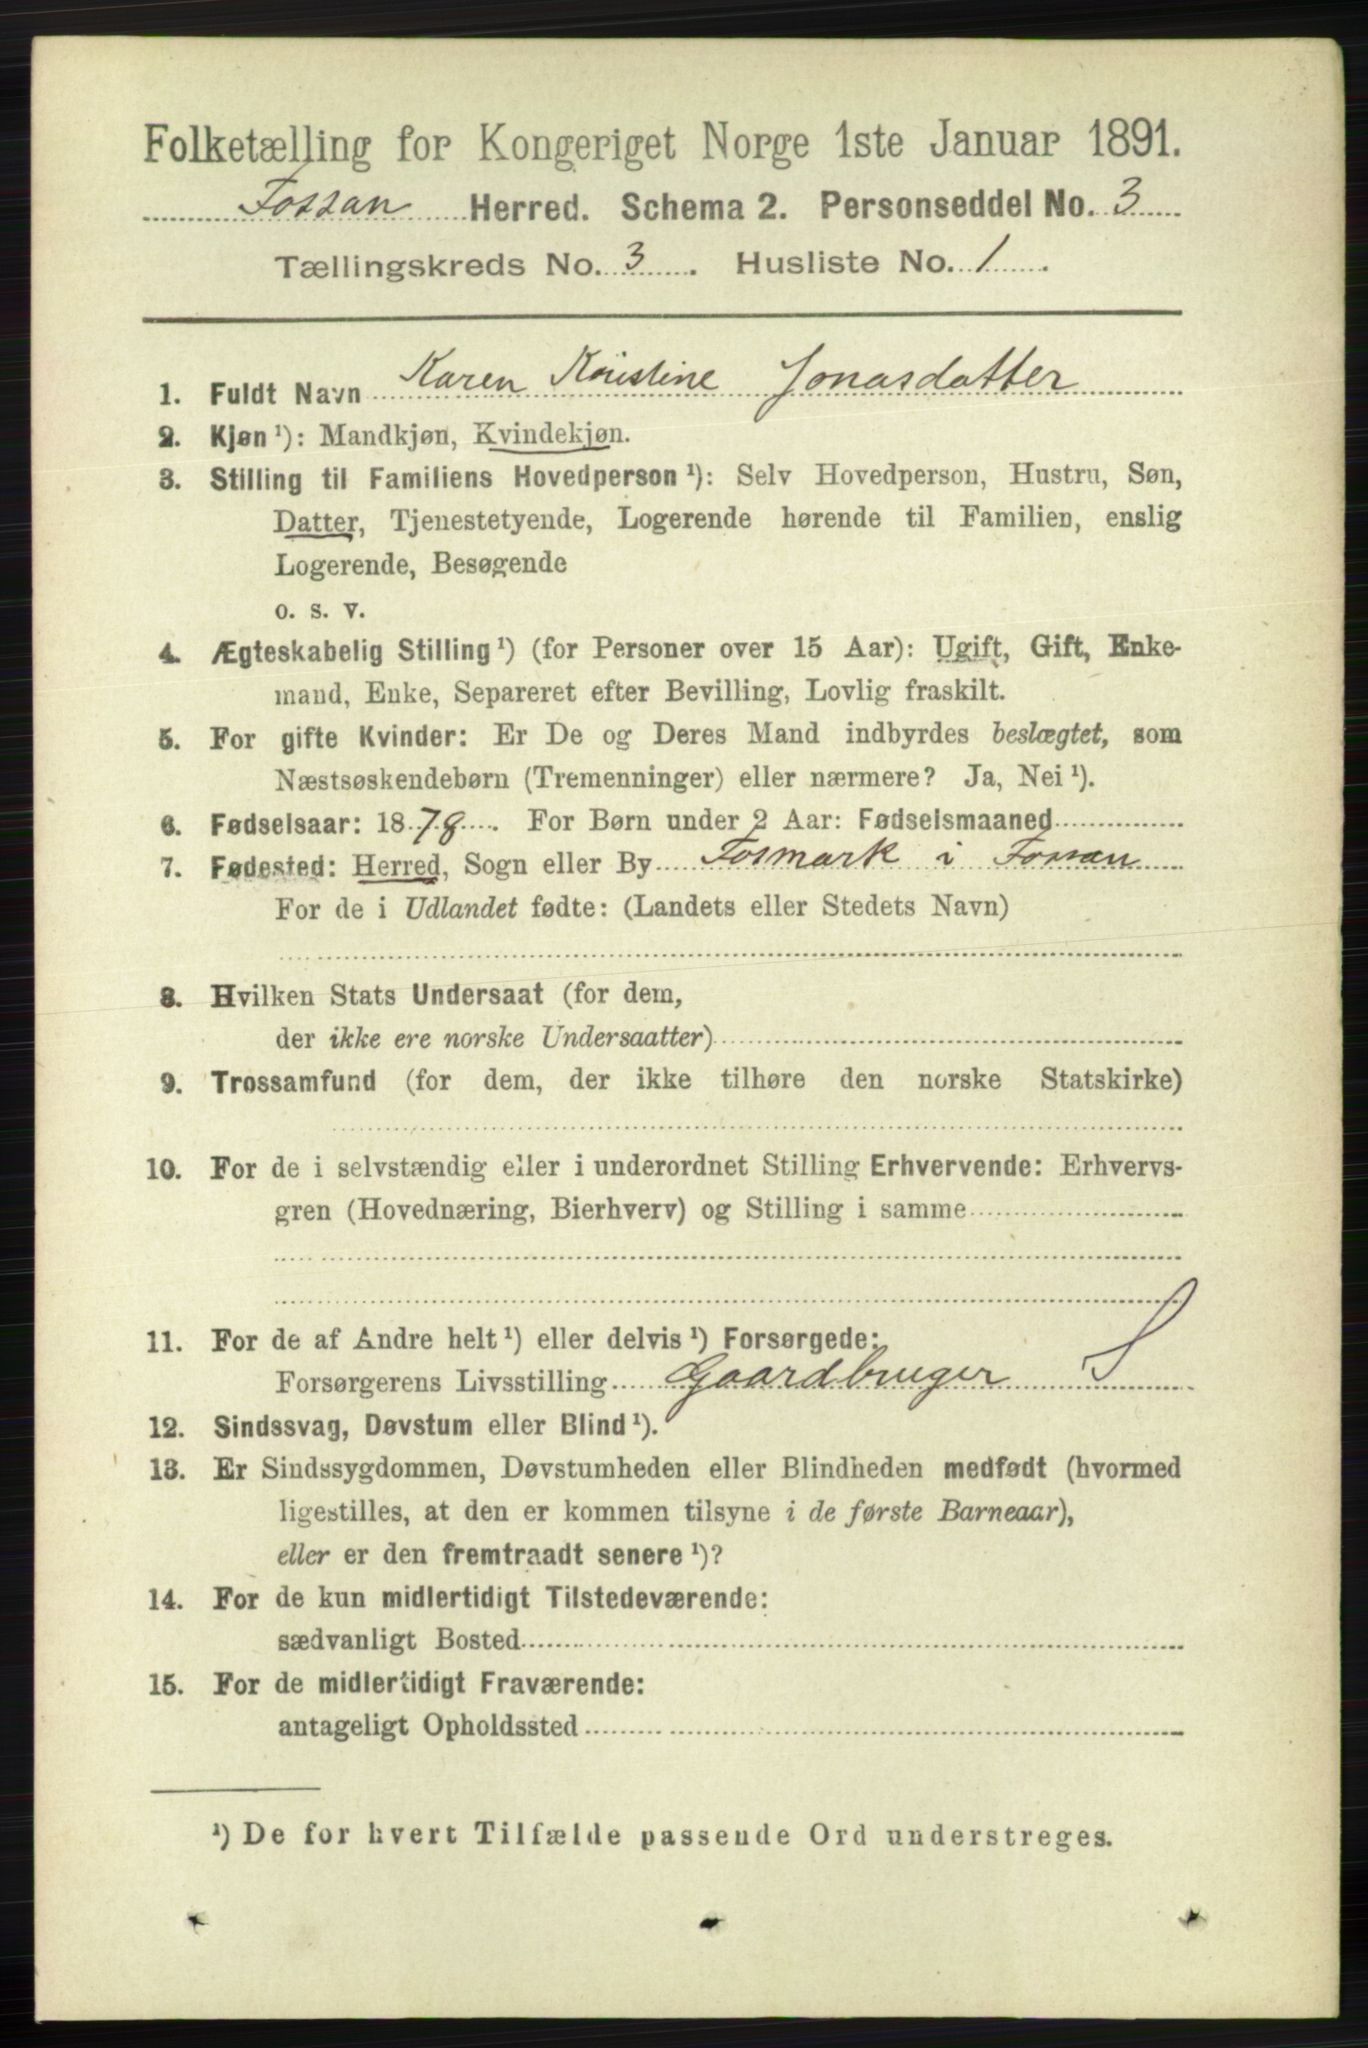 Folketælling for Kongeriget Norge 1ste Januar 1891.
Fossan Herred. Schema 2. Personseddel No. 3
Tællingskreds No. 3. Husliste No. 1.
1. Fuldt Navn Karen Kristine Jonasdatter
2. Kjøn ¹): Mandkjøn, Kvindekjøn.
3. Stilling til Familiens Hovedperson ¹): Selv Hovedperson, Hustru, Søn,
Datter, Tjenestetyende, Logerende hørende til Familien, enslig
Logerende, Besøgende
o. s. v.
4. Ægteskabelig Stilling ¹) (for Personer over 15 Aar): Ugift, Gift, Enke-
mand, Enke, Separeret efter Bevilling, Lovlig fraskilt.
5. For gifte Kvinder: Er De og Deres Mand indbyrdes beslægtet, som
Næstsøskendebørn (Tremenninger) eller nærmere? Ja, Nei ¹).
6. Fødselsaar: 1878. For Børn under 2 Aar: Fødselsmaaned
7. Fødested: Herred, Sogn eller By Fosmark i Fossan
For de i Udlandet fødte: (Landets eller Stedets Navn)
8. Hvilken Stats Undersaat (for dem,
der ikke ere norske Undersaatter)
9. Trossamfund (for dem, der ikke tilhøre den norske Statskirke)
10. For de i selvstændig eller i underordnet Stilling Erhvervende: Erhvervs-
gren (Hovednæring, Bierhverv) og Stilling i samme
11. For de af Andre helt ¹) eller delvis ¹) Forsørgede:
Forsørgerens Livsstilling Gaardbruger S
12. Sindssvag, Døvstum eller Blind ¹).
13. Er Sindssygdommen, Døvstumheden eller Blindheden medfødt (hvormed
ligestilles, at den er kommen tilsyne i de første Barneaar),
eller er den fremtraadt senere ¹)?
14. For de kun midlertidigt Tilstedeværende:
sædvanligt Bosted
15. For de midlertidigt Fraværende:
antageligt Opholdssted
¹) De for hvert Tilfælde passende Ord understreges.